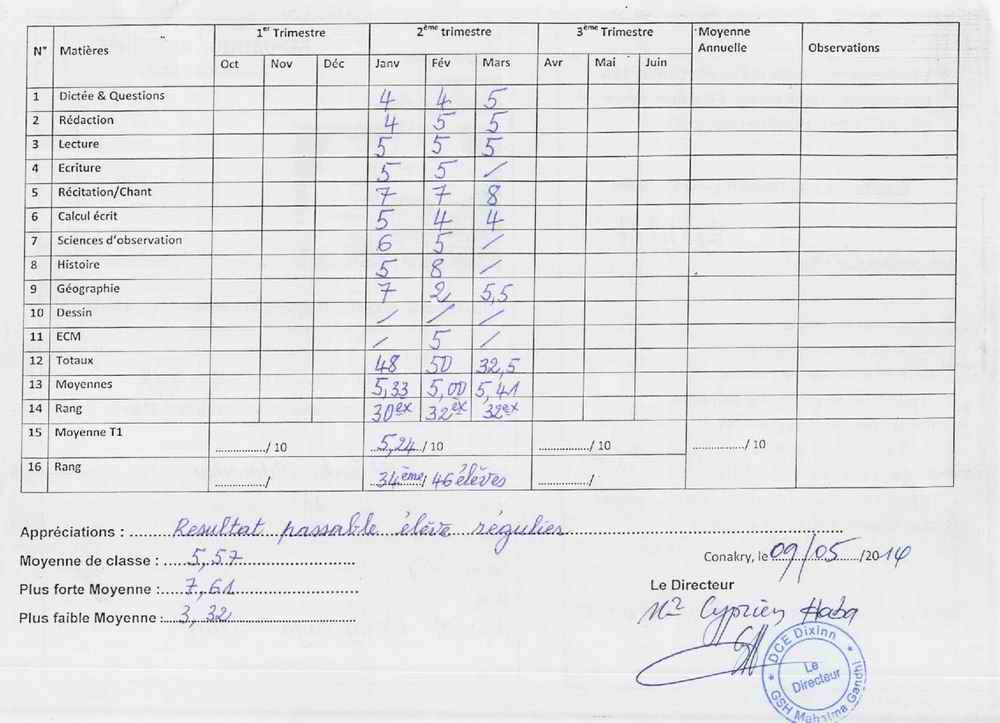 N° Matières 1er Trimestre 2ème trimestre 3ème Trimestre Moyenne Annuelle Observations
Oct Nov Déc Janv Fév Mars Avr Mai Juin
1 Dictée & Questions 4 4 5
2 Rédaction 4 5 5
3 Lecture 5 5 5
4 Ecriture 5 5 /
5 Récitation/Chant 7 7 8
6 Calcul écrit 5 4 4
7 Sciences d'observation 6 5 /
8 Histoire 5 8 /
9 Géographie 7 2 5,5
10 Dessin / / /
11 ECM / 5 /
12 Totaux 48 50 32,5
13 Moyennes 5,33 5,00 5,41
14 Rang 30ex 32ex 32ex
15 Moyenne T1 ................/ 10 5,24/ 10 ................/ 10 ................/ 10
16 Rang ................/ 34ème/ 46 élèves ................/
Appréciations : Resultat passable élève régulies
Moyenne de classe : 5,57
Plus forte Moyenne : 7,61
Plus faible Moyenne : 3,32
Conakry, le 09/05/2014
Le Directeur
Mr Cyprien Haba
DCE Dixinn
Le Directeur
GSH Mahatma Gandhi